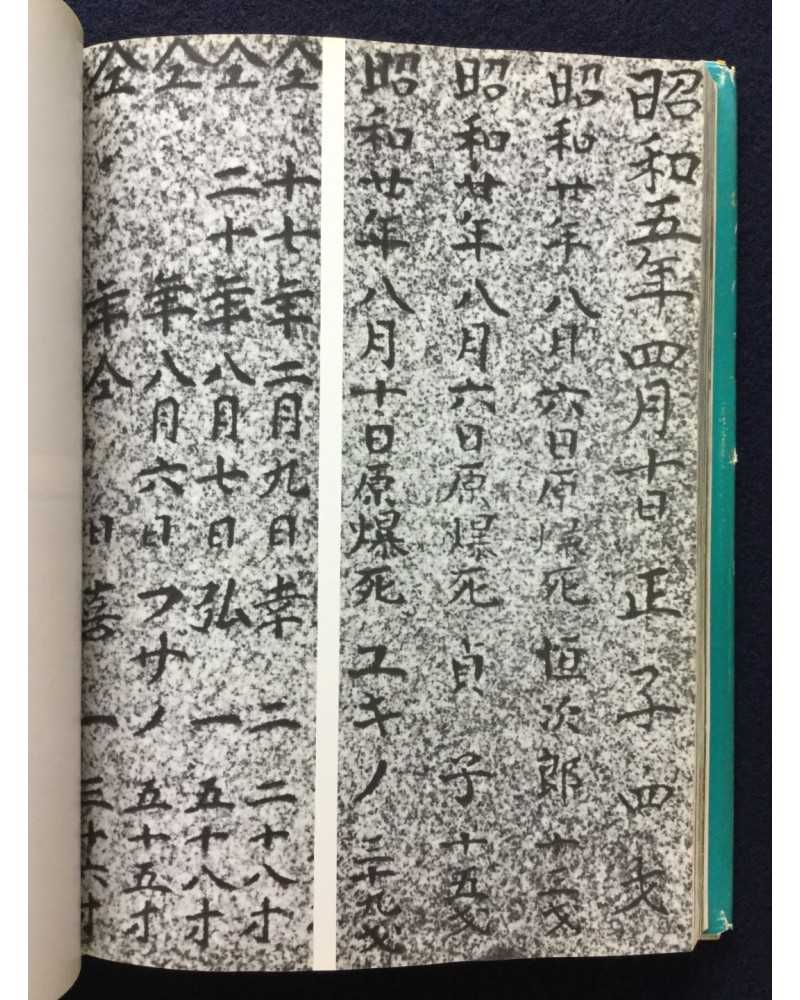 昭和五年四月十日 正子 四才
昭和廿年八月六日原爆死 恒次郎 十二才
昭和廿年八月六日原爆死 貞子 十五才
昭和廿年八月十日原爆死 ユキノ 三十九才
仝 十七年二月九日 幸二 二十八才
仝 二十年八月七日 弘一 五十八才
仝 年八月六日 フサノ 五十五才
仝 年仝 日 喜一 三十六才